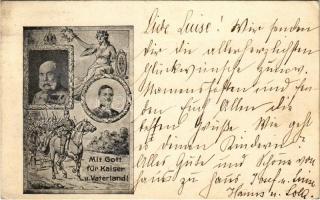 Mit Gott
für Kaiser
u. Vaterland!
Liebe Luise! Wir senden
dir die allerherzlichsten
Glückwünsche zum
Namensfesten und
Euch Allen die
besten Grüße. Wie geht
es deinen Kindern?
Alles Gute und Schöne von
Haus zu Haus,
Hanns u.